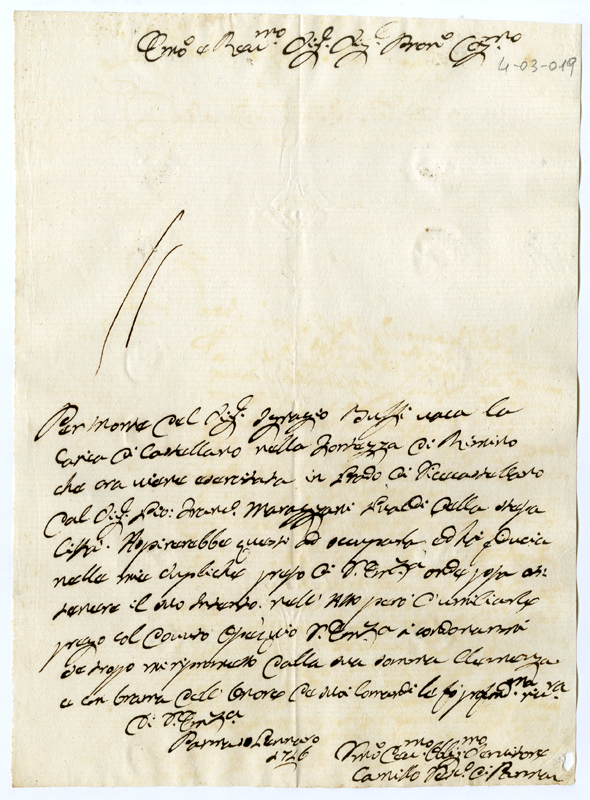 Em.o e Reu.mo Sig.r Sig.r Pron.e Col.mo
4-03-019
Per Morte del Sig.r Ignazio Buffi uaca la
Carica di Castellano nella Fortezza di Rimino
che ora uiene esercitata in grado di Vicecastellano
dal Sig.r Gio: Fran.co Marazzani Eualdi della stessa
Città. Aspirerebbe questi ad occuparla, ed hà fiducia
nelle mie suppliche presso di V. Em.za onde possa ot=
tenere il suo Intento. nell' Atto però d'umiliarle
prego col douuto Ossequio V. Em.za à condonarmi
se troppo mi riprometto dalla sua somma Clemenza
e con brama dell' Onore de suoi comandi le fò profond.ma riu.za
Di V. Em.za
Parma 10 Gennaro
1726
Um.mo Deu.mo Obblig.mo Seruitore
Camillo Vesc.o di Parma